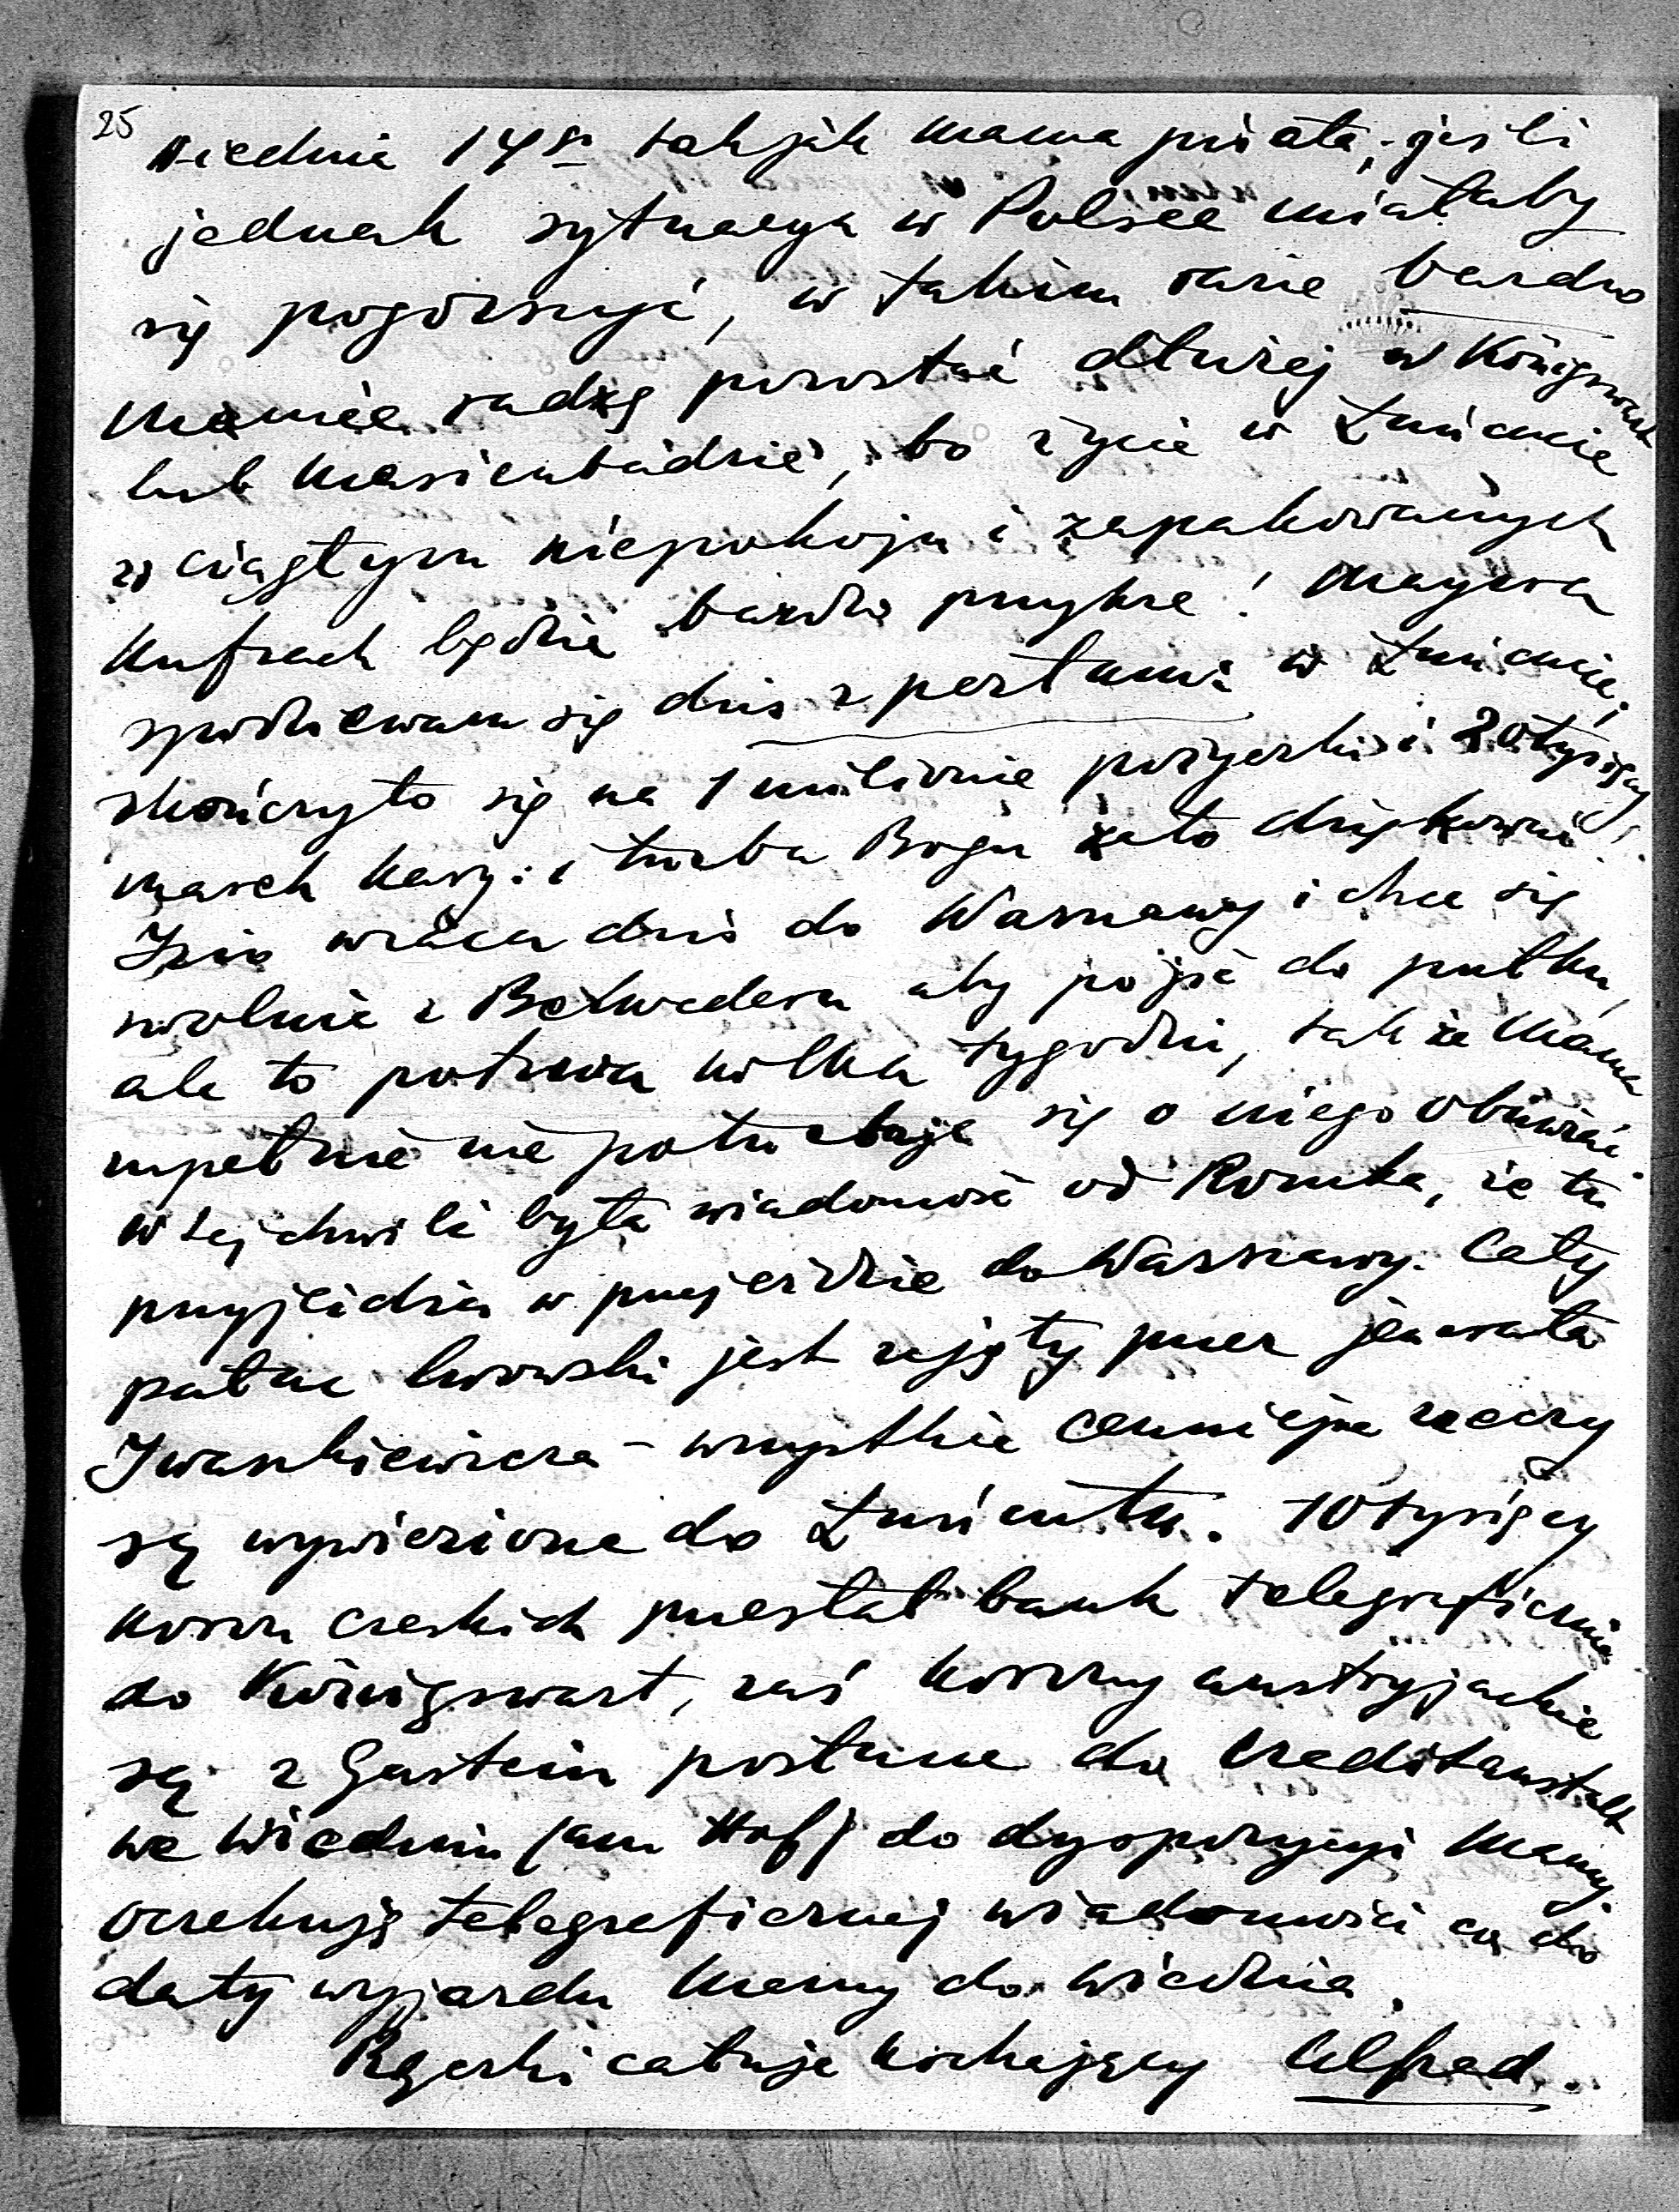 25
Wiednia 14go tak jak Mama pisała; jeśli
jednak sytuacya w Polsce miałaby
się pogorszyć, w takim razie bardzo
Mamie radzę pozostać dłużej w Königswart
lub Marienbadzie, bo życie w Łańcucie
w ciągłym niepokoju i zapakowanych
kufrach będzie bardzo przykre! Mayera
spodziewam się dziś z perłami w Łańcucie,
skończyło się na 1 milionie pożyczki i 20 tysięcy
marek kary: i trzeba Bogu za to dziękować!
Jzio wraca dziś do Warszawy i chce się
zwolnić z Belwederu aby pójść do pułku,
ale to potrwa kilka tygodni, tak że Mama
zupełnie nie potrzebuje się o niego obawiać.
W tej chwili była wiadomość od Romka, że tu
przyjeżdża w przejeździe do Warszawy. Cały
pałac lwowski jest zajęty przez jenerała
Iwaszkiewicza – wszystkie cenniejsze rzeczy
są wywiezione do Łańcuta. 10 tysięcy
koron czeskich przesłał bank telegraficznie
do Königswart, zaś korony austryjackie
są z Gastein posłane do Creditanstalt
we Wiedniu (am Hof) do dyspozycyi Mamy.
Oczekuję telegraficznej wiadomości co do
daty wyjazdu Mamy do Wiednia.
Rączki całuje kochający Alfred.